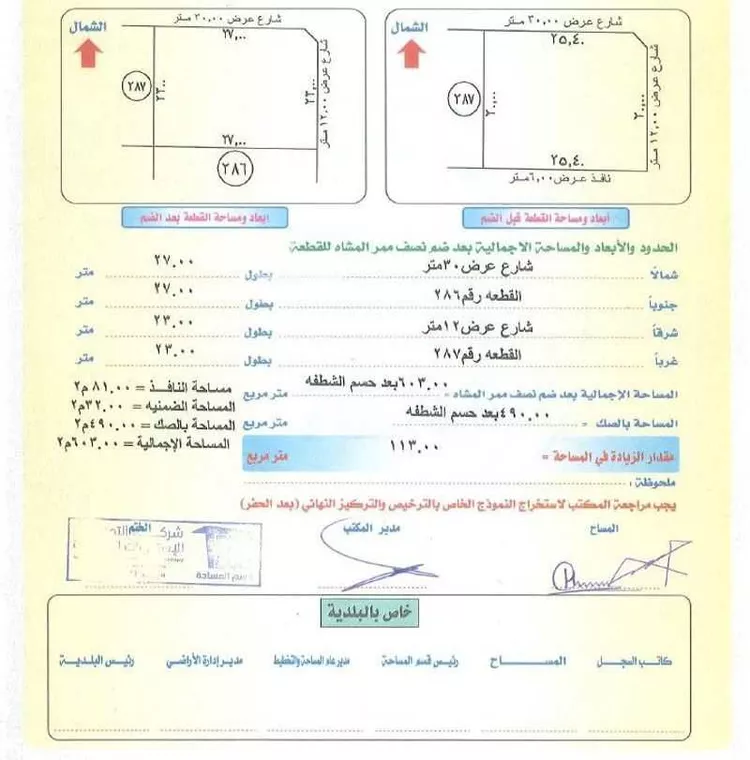 شارع عرض ٣٠,٠٠ متر
الشمال
٢٥,٤٠
٢٨٧
٢٠,٠٠
٢٠,٠٠
شارع عرض ١٢,٠٠ متر
٢٥,٤٠
نافذ عرض ٦,٠٠ متر
أبعاد ومساحة القطعة قبل الضم
شارع عرض ٣٠,٠٠ متر
الشمال
٢٧,٠٠
٢٨٧
٢٣,٠٠
٢٣,٠٠
شارع عرض ١٢,٠٠ متر
٢٧,٠٠
٢٨٦
إبعاد ومساحة القطعة بعد الضم
الحدود والأبعاد والمساحة الاجمالية بعد ضم نصف ممر المشاه للقطعة
شمالاً شارع عرض ٣٠متر بطول ٢٧.٠٠ متر
جنوباً القطعه رقم ٢٨٦ بطول ٢٧.٠٠ متر
شرقاً شارع عرض ١٢متر بطول ٢٣.٠٠ متر
غرباً القطعه رقم ٢٨٧ بطول ٢٣.٠٠ متر
المساحة الإجمالية بعد ضم نصف ممر المشاه = ٦٠٣.٠٠بعد حسم الشطفه متر مربع
المساحة بالصك = ٤٩٠.٠٠بعد حسم الشطفه متر مربع
مقدار الزيادة في المساحة = ١١٣.٠٠ متر مربع
مساحة النافذ = ٨١.٠٠ م٢
المساحة الضمنيه = ٣٢.٠٠م٢
المساحة بالصك = ٤٩٠.٠٠م٢
المساحة الإجمالية = ٦٠٣.٠٠م٢
ملحوظة :
يجب مراجعة المكتب لاستخراج النموذج الخاص بالترخيص والتركيز النهائي (بعد الحفر)
المساح مدير المكتب الختم
خاص بالبلدية
كاتب السجل المساح رئيس قسم المساحة مدير عام المساحة والتخطيط مدير إدارة الأراضي رئيس البلدية